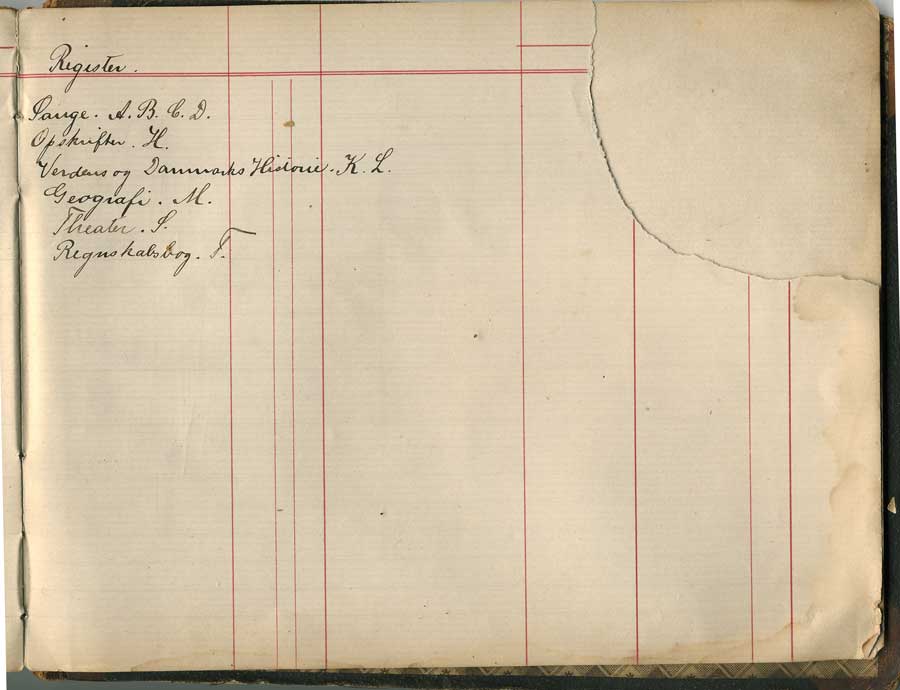 Register.
Sange. A. B. C. D.
Opskrifter. H.
Verdens og Danmarks Historie. K. L.
Geografi. M.
Theater. S.
Regnskabsbog. T.